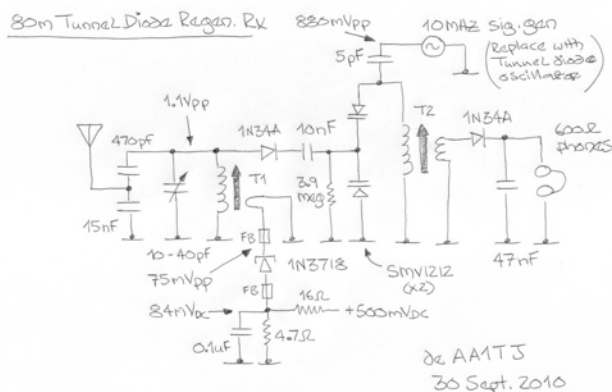 80m Tunnel Diode Regen. Rx
880mVpp
10MHz sig.gen
(Replace with
Tunnel diode
oscillator)
5pF
1.1Vpp
470pf
1N34A
10nF
T2
1N34A
600Ω
phones
T1
3.9
meg
15nF
10-40pf
FB
75mVpp
1N3718
SMV1212
(x2)
47nF
FB
84mVDC
16Ω
+500mVDC
0.1uF
4.7Ω
de AA1TJ
30 Sept. 2010